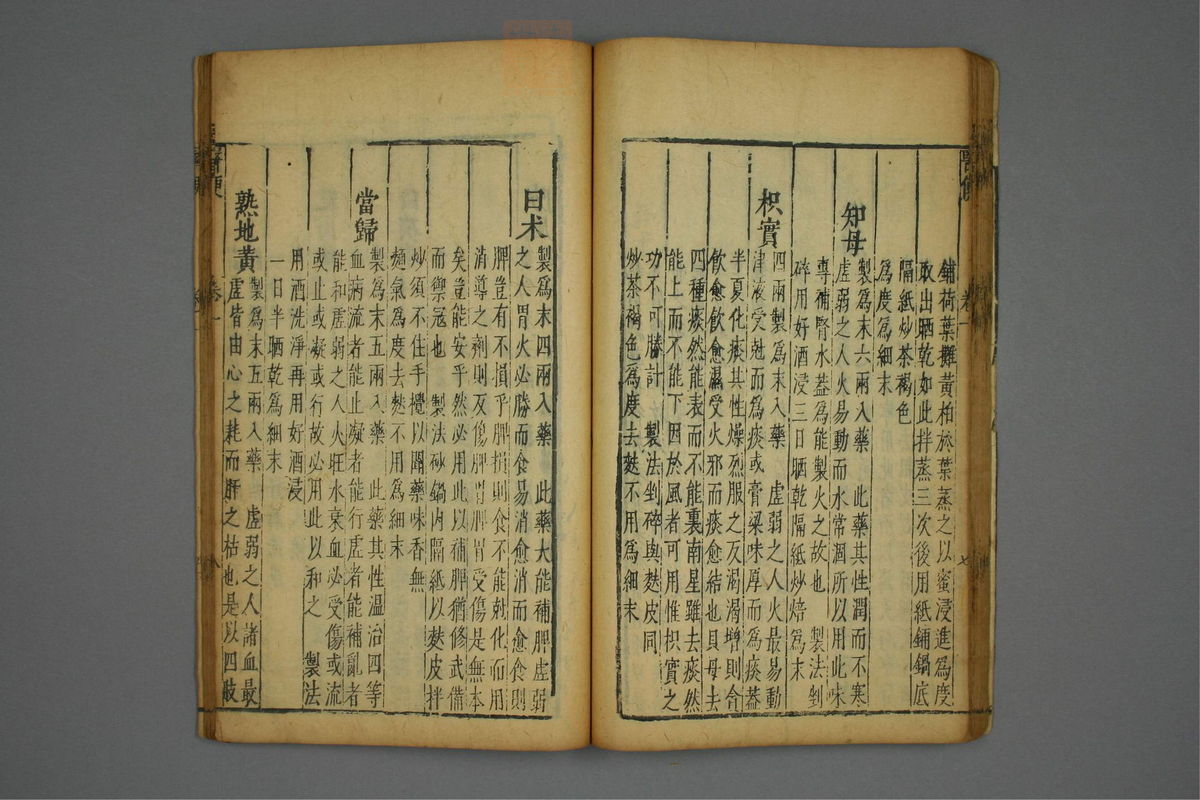 鋪荷葉攤黃柏於葉蒸之以蜜浸進為度
取出晒乾如此拌蒸三次後用紙鋪鍋底
隔紙炒茶褐色
為度為細末
知母
製為末六兩入藥 此藥其性潤而不寒
虛弱之人火易動而水常涸所以用此味
專補腎水葢為能製火之故也 製法剉
碎用好酒浸三日晒乾隔紙炒焙為末
枳實
四兩製為末入藥 虛弱之人火最易動
津液受尅而為痰或膏粱味厚而為痰葢
半夏化痰其性燥烈服之反渴渴增則合
飲愈飲愈濕受火邪而痰愈結也貝母去
四種痰然能表而不能裏南星雖去痰然
能上而不能下因於風者可用惟枳實之
功不可勝計 製法剉碎與麩皮同
炒茶褐色為度去麩不用為細末
白术
製為末四兩入藥 此藥大能補脾虛弱
之人胃火必勝而食易消愈消而愈食則
脾豈有不損乎脾損則食不能尅化而用
消導之劑則反傷脾胃脾胃受傷是無本
矣豈能安乎然必用此以補脾猶修武備
而禦寇也 製法砂鍋內隔紙以麩皮拌
炒須不住手攪以聞藥味香無
麵氣為度去麩不用為細末
當歸
製為末五兩入藥 此藥其性溫治四等
血病流者能止凝者能行虛者能補亂者
能和虛弱之人火旺水衰血必受傷或流
或止或凝或行故必用此以和之 製法
用酒洗淨再用好酒浸
一日半晒乾為細末
熟地黃
製為末五兩入藥 虛弱之人諸血最
虛皆由心之耗而肝之枯也是以四肢
醫便
卷一
七
醫便
卷一
八